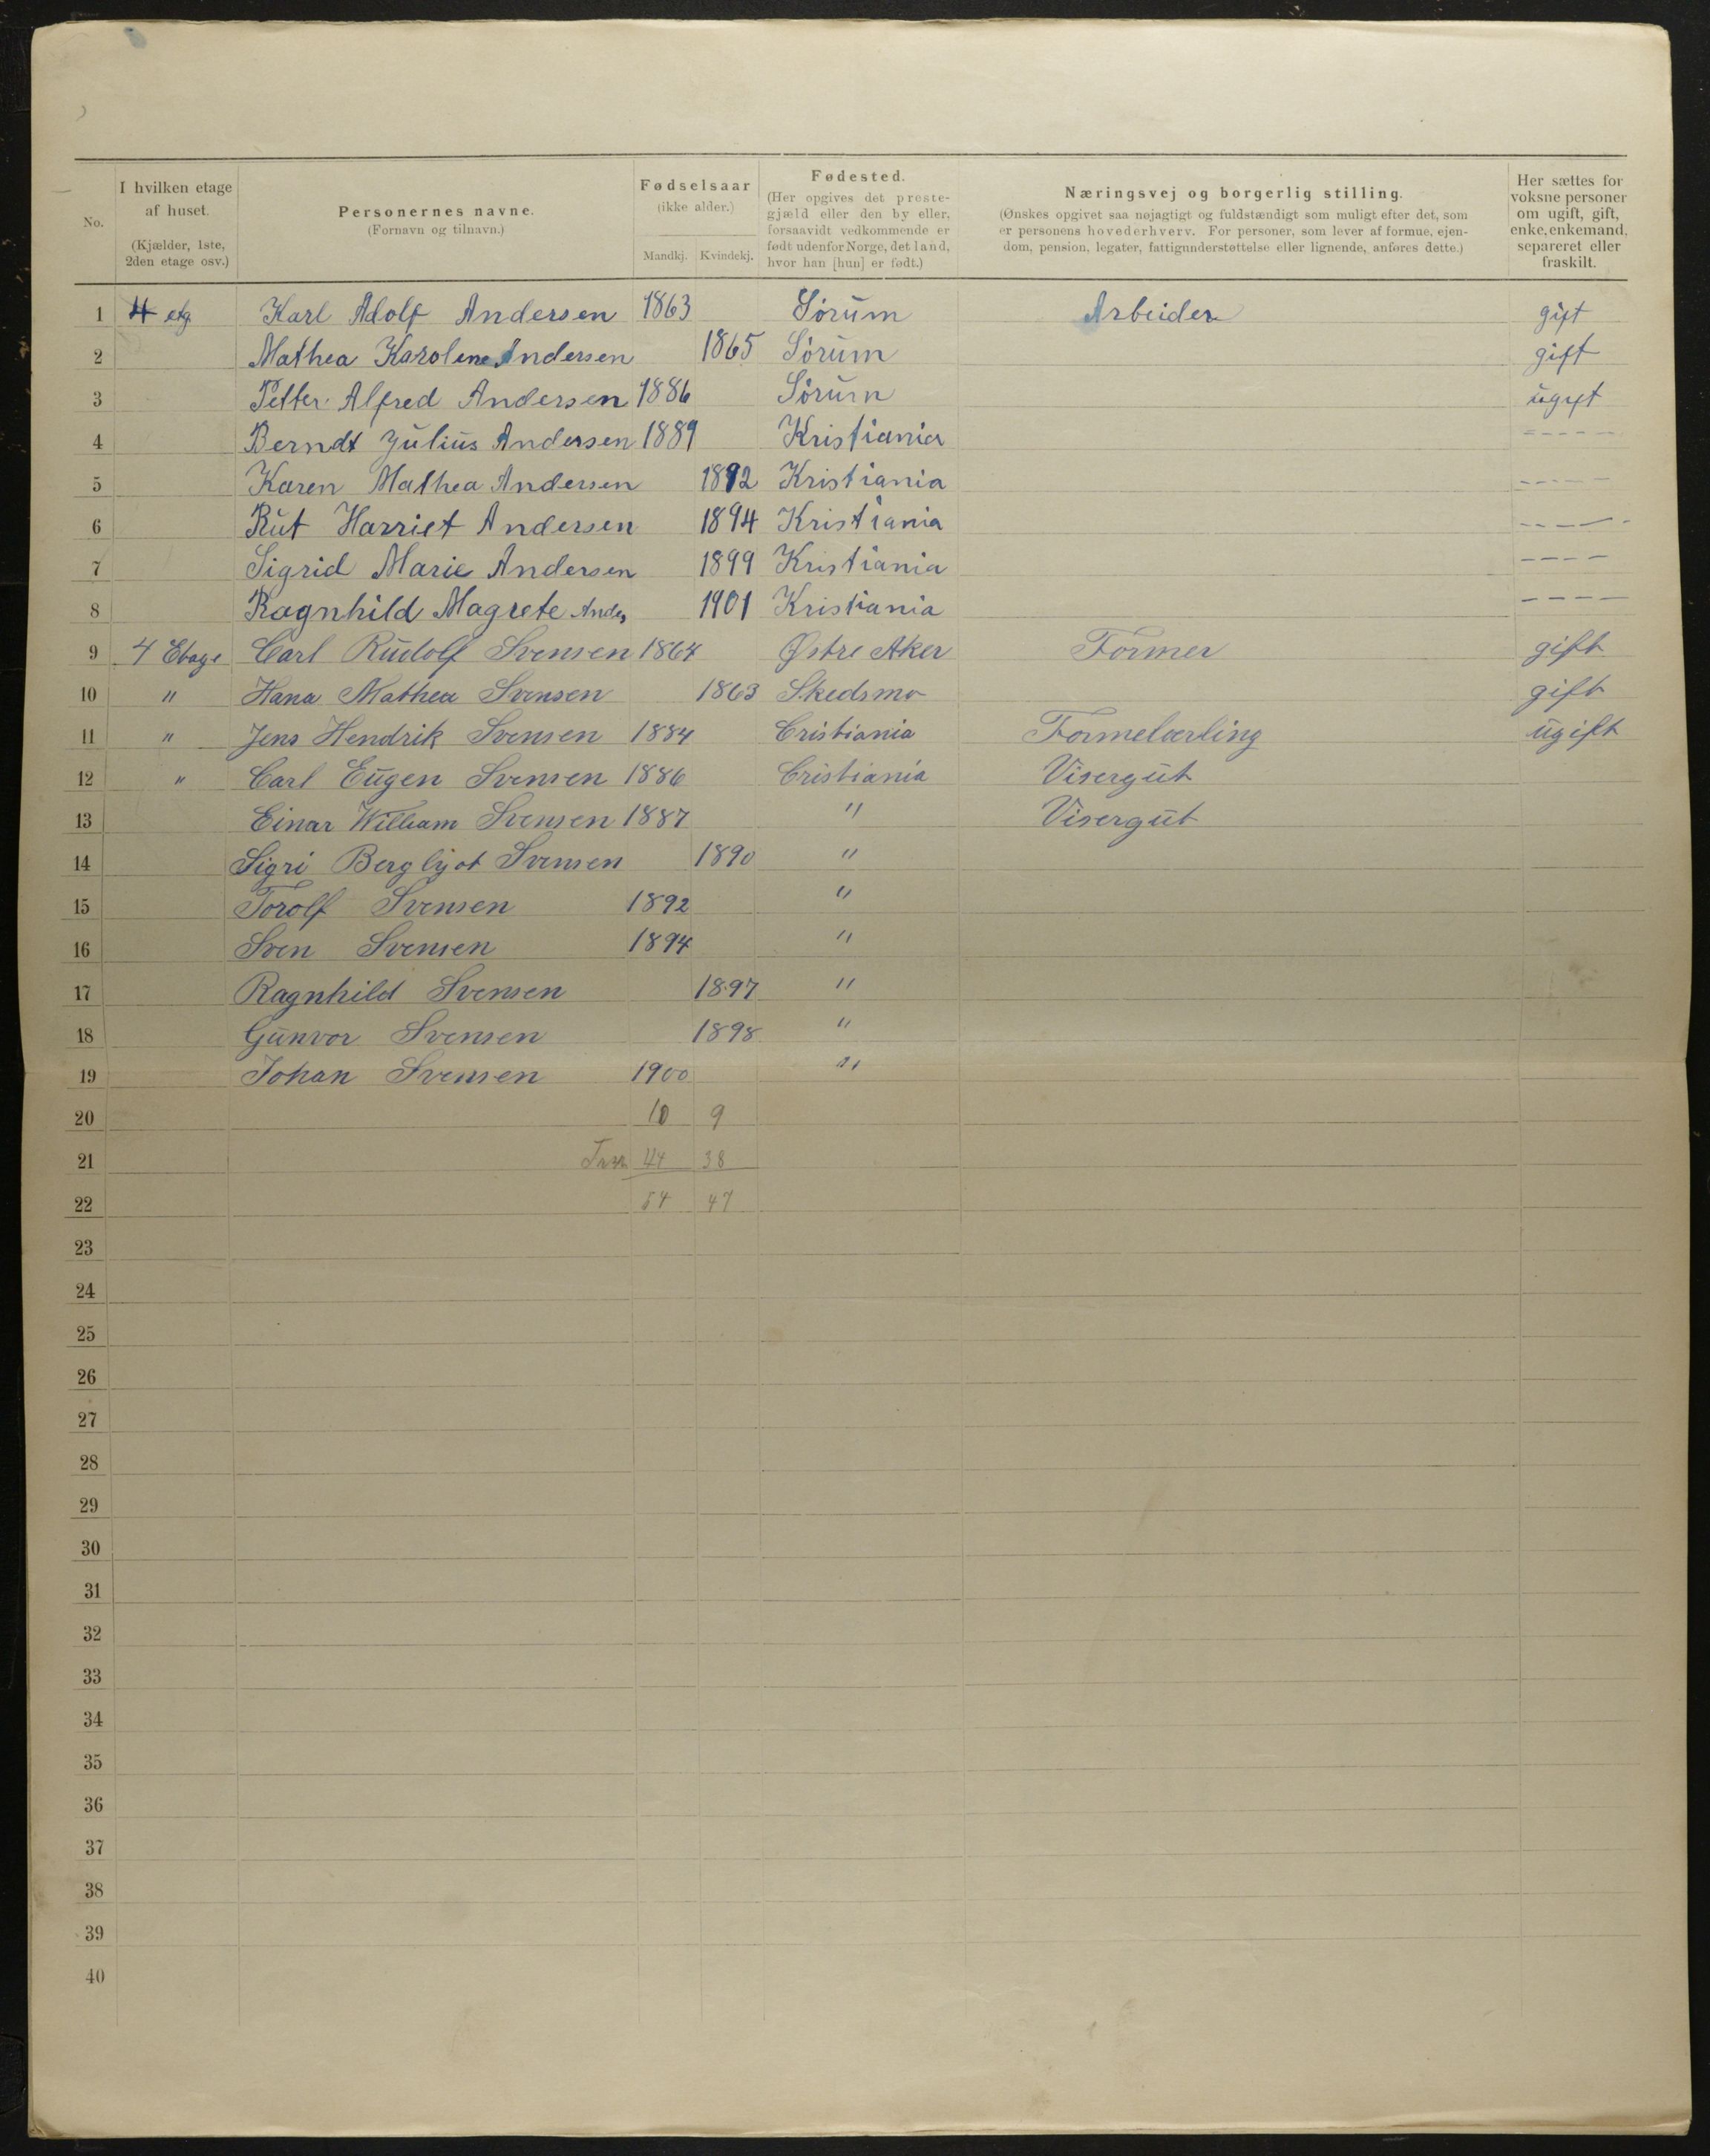 No.
I hvilken etage
af huset.
(Kjælder, 1ste,
2den etage osv.)
Personernes navne.
(Fornavn og tilnavn.)
Fødselsaar
(ikke alder.)
Mandkj. Kvindekj.
Fødested.
(Her opgives det preste-
gjæld eller den by eller,
forsaavidt vedkommende er
født udenfor Norge, det land,
hvor han [hun] er født.)
Næringsvej og borgerlig stilling.
(Ønskes opgivet saa nøjagtigt og fuldstændigt som muligt efter det, som
er personens hovederhverv. For personer, som lever af formue, ejen-
dom, pension, legater, fattigunderstøttelse eller lignende, anføres dette.)
Her sættes for
voksne personer
om ugift, gift,
enke, enkemand,
separeret eller
fraskilt.
1 4 etg. Karl Adolf Andersen 1863 Sörum Arbeider gift
2 Mathea Karolene Andersen 1865 Sörum gift
3 Petter Alfred Andersen 1886 Sörum ugift
4 Berndt Julius Andersen 1889 Kristiania -----
5 Karen Mathea Andersen 1892 Kristiania -----
6 Rut Harriet Andersen 1894 Kristiania -----
7 Sigrid Marie Andersen 1899 Kristiania ----
8 Ragnhild Magrete Anders 1901 Kristiania ----
9 4 Etage Carl Rudolf Svensen 1864 Østre Aker Former gift
10 " Hana Mathea Svensen 1863 Skedsmo gift
11 " Jens Hendrik Svensen 1884 Cristiania Formelærling ugift
12 " Carl Eugen Svensen 1886 Cristiania Visergut
13 Einar William Svensen 1887 " Visergut
14 Sigri Bergljot Svensen 1890 "
15 Torolf Svensen 1892 "
16 Sven Svensen 1894 "
17 Ragnhild Svensen 1897 "
18 Gunvor Svensen 1898 "
19 Johan Svensen 1900 "
20 10 9
21 44 38
22 54 47
23
24
25
26
27
28
29
30
31
32
33
34
35
36
37
38
39
40